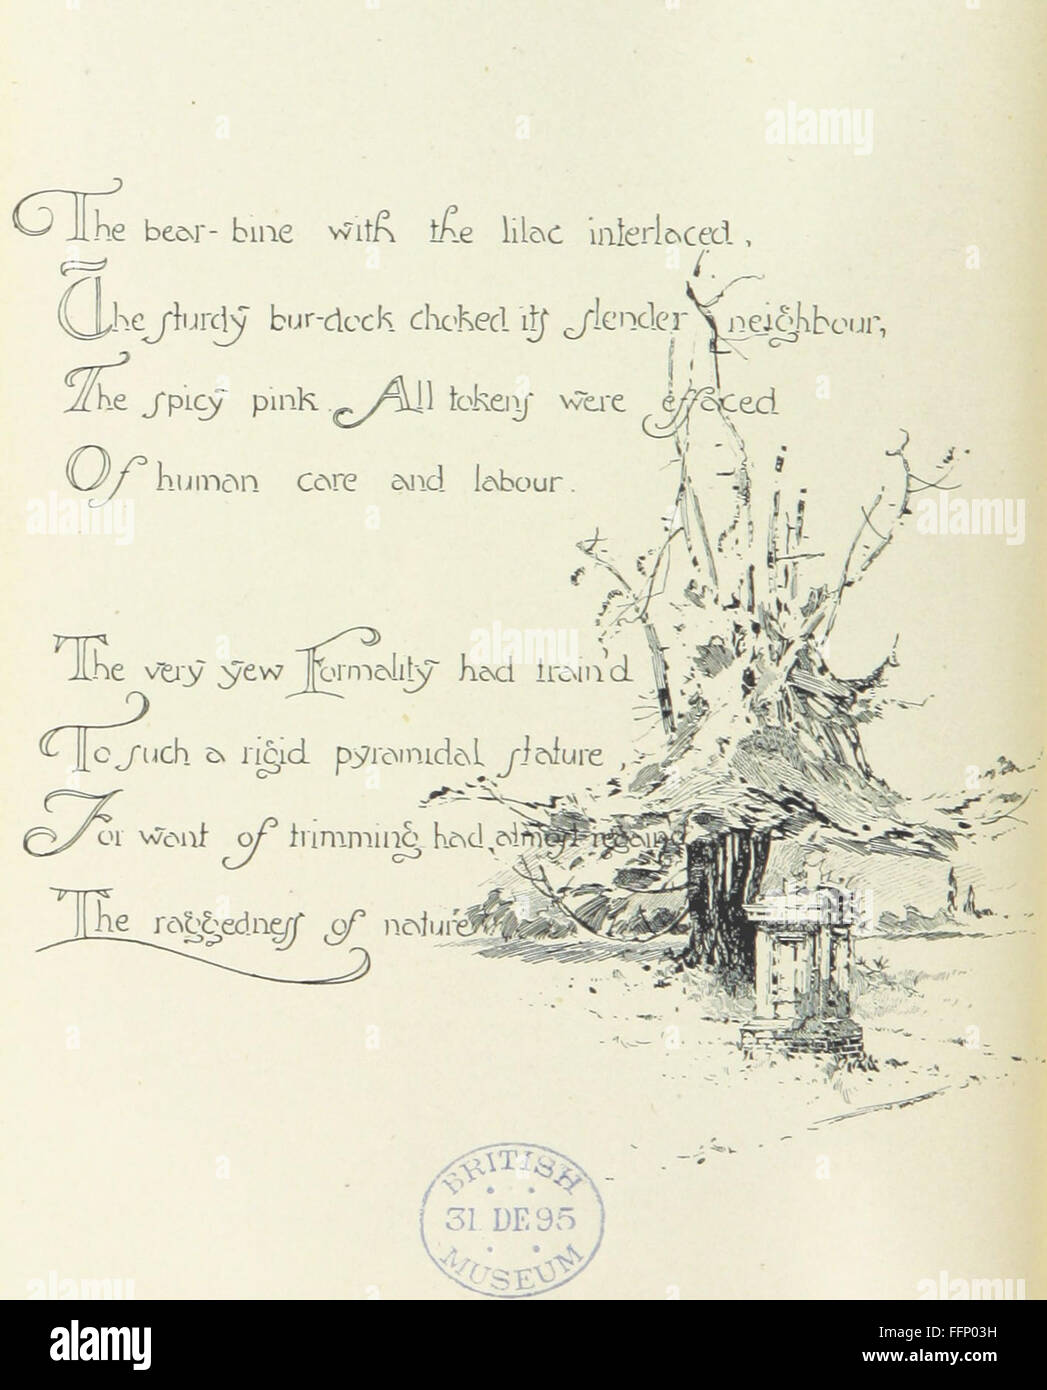 alamy
The bear-bine with the lilac interlaced,
The sturdy bur-dock choked its slender neighbour,
The spicy pink. All tokens were effaced
Of human care and labour.
The very yew Formality had train'd
To such a rigid pyramidal stature,
For want of trimming had almost regain'd
The raggedness of nature
BRITISH
31 DE 95
MUSEUM
alamy
Image ID: FFP03H
www.alamy.com